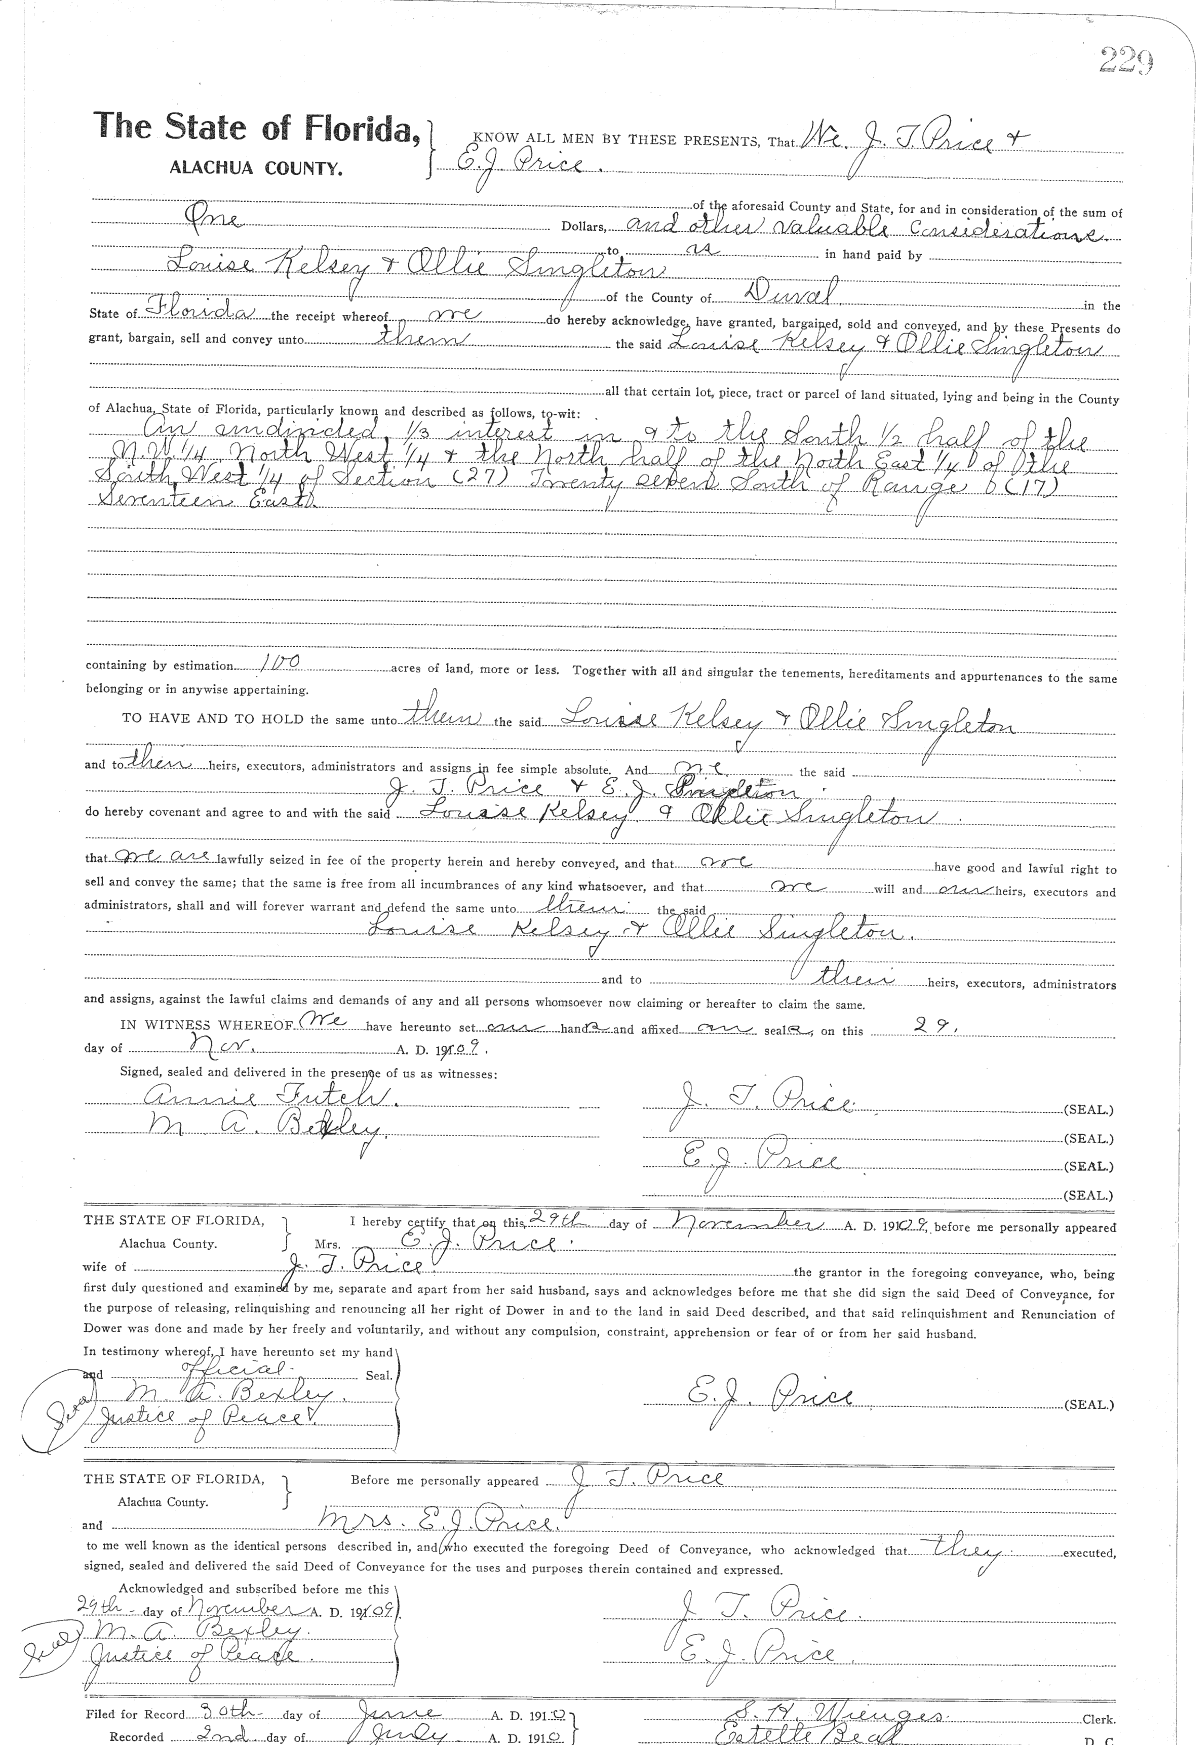 229
The State of Florida,
KNOW ALL MEN BY THESE PRESENTS, That We. J. T. Price &
ALACHUA COUNTY.
E. J. Price.
of the aforesaid County and State, for and in consideration of the sum of
One Dollars, and other valuable Considerations
to us in hand paid by
Louise Kelsey & Ollie Singleton
of the County of Duval in the
State of Florida the receipt whereof we do hereby acknowledge, have granted, bargained, sold and conveyed, and by these Presents do
grant, bargain, sell and convey unto them the said Louise Kelsey & Ollie Singleton
all that certain lot, piece, tract or parcel of land situated, lying and being in the County
of Alachua, State of Florida, particularly known and described as follows, to-wit:
An undivided 1/3 interest in & to the South 1/2 half of the
N.W. 1/4 North West 1/4 & the North half of the North East 1/4 of the
South West 1/4 of Section (27) Twenty seven South of Range (17)
Seventeen East.
containing by estimation 100 acres of land, more or less. Together with all and singular the tenements, hereditaments and appurtenances to the same
belonging or in anywise appertaining.
TO HAVE AND TO HOLD the same unto them the said Louise Kelsey & Ollie Singleton
and to their heirs, executors, administrators and assigns in fee simple absolute. And we the said
J. T. Price & E. J.
do hereby covenant and agree to and with the said Louise Kelsey & Ollie Singleton.
that we are lawfully seized in fee of the property herein and hereby conveyed, and that we have good and lawful right to
sell and convey the same; that the same is free from all incumbrances of any kind whatsoever, and that we will and our heirs, executors and
administrators, shall and will forever warrant and defend the same unto them the said
Louise Kelsey & Ollie Singleton.
and to their heirs, executors, administrators
and assigns, against the lawful claims and demands of any and all persons whomsoever now claiming or hereafter to claim the same.
IN WITNESS WHEREOF We have hereunto set our hands and affixed our seals, on this 29.
day of Nov. A. D. 1909.
Signed, sealed and delivered in the presence of us as witnesses:
Annie Futch. J. T. Price (SEAL.)
M A. Bexley. (SEAL.)
E. J. Price (SEAL.)
(SEAL.)
THE STATE OF FLORIDA, I hereby certify that on this 29th day of November A. D. 1909, before me personally appeared
Alachua County. Mrs. E. J. Price.
wife of J. T. Price the grantor in the foregoing conveyance, who, being
first duly questioned and examined by me, separate and apart from her said husband, says and acknowledges before me that she did sign the said Deed of Conveyance, for
the purpose of releasing, relinquishing and renouncing all her right of Dower in and to the land in said Deed described, and that said relinquishment and Renunciation of
Dower was done and made by her freely and voluntarily, and without any compulsion, constraint, apprehension or fear of or from her said husband.
In testimony whereof, I have hereunto set my hand
and official Seal.
M. A. Bexley. E. J. Price (SEAL.)
Seal Justice of Peace.
THE STATE OF FLORIDA, Before me personally appeared J T. Price
Alachua County.
and Mrs. E. J. Price.
to me well known as the identical persons described in, and who executed the foregoing Deed of Conveyance, who acknowledged that they executed,
signed, sealed and delivered the said Deed of Conveyance for the uses and purposes therein contained and expressed.
Acknowledged and subscribed before me this
29th day of November A. D. 1909 J. T. Price.
Seal M. A. Bexley.
Justice of Peace. E. J. Price.
Filed for Record 30th day of June A. D. 1910 S. H. Wienges. Clerk.
Recorded 2nd day of July A. D. 1910 Estelle Beal D. C.